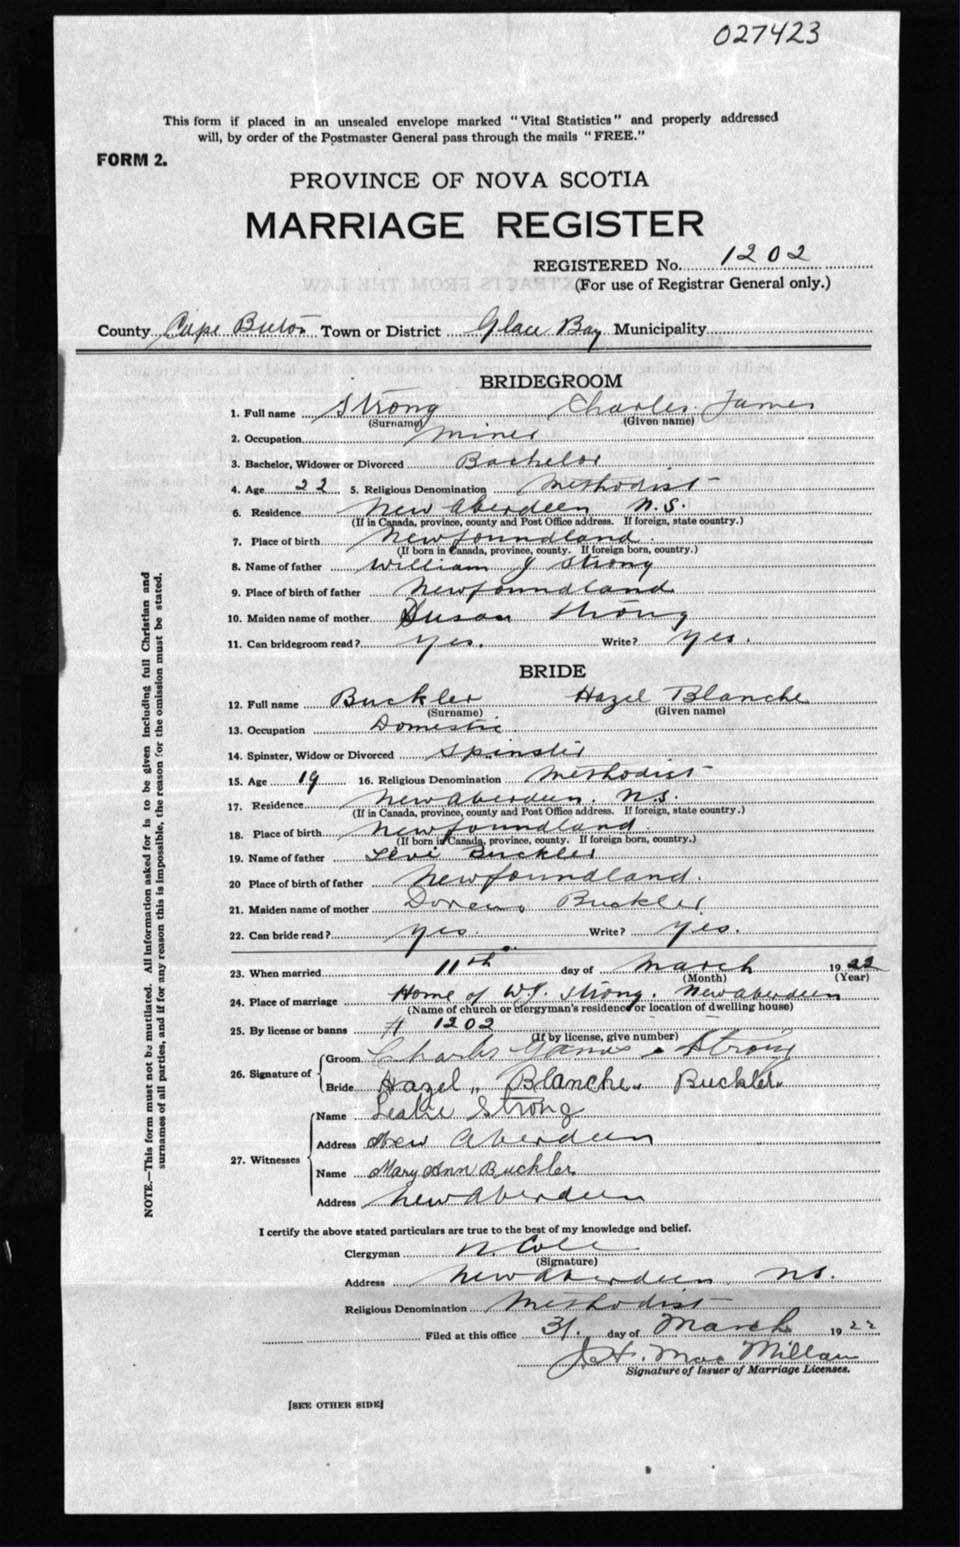 027423
This form if placed in an unsealed envelope marked "Vital Statistics" and properly addressed
will, by order of the Postmaster General pass through the mails "FREE."
FORM 2.
PROVINCE OF NOVA SCOTIA
MARRIAGE REGISTER
REGISTERED No. 1202
(For use of Registrar General only.)
County Cape Breton Town or District Glace Bay Municipality
BRIDEGROOM
1. Full name Strong Charles James
(Surname) (Given name)
2. Occupation Miner
3. Bachelor, Widower or Divorced Bachelor
4. Age 22 5. Religious Denomination Methodist
6. Residence New Aberdeen N.S.
(If in Canada, province, county and Post Office address. If foreign, state country.)
7. Place of birth Newfoundland.
(If born in Canada, province, county. If foreign born, country.)
8. Name of father William J Strong
9. Place of birth of father Newfoundland
10. Maiden name of mother Susan Strong
11. Can bridegroom read? yes. Write? yes.
BRIDE
12. Full name Buckler Hazel Blanche
(Surname) (Given name)
13. Occupation Domestic.
14. Spinster, Widow or Divorced Spinster
15. Age 19 16. Religious Denomination Methodist
17. Residence New Aberdeen. N.S.
(If in Canada, province, county and Post Office address. If foreign, state country.)
18. Place of birth Newfoundland.
(If born in Canada, province, county. If foreign born, country.)
19. Name of father Levi Buckler
20 Place of birth of father Newfoundland.
21. Maiden name of mother Buckler
22. Can bride read? yes. Write? yes.
23. When married 11th day of March 1922
(Month) (Year)
24. Place of marriage Home of W.J. Strong. New Aberdeen
(Name of church or clergyman's residence or location of dwelling house)
25. By license or banns # 1202
(If by license, give number)
26. Signature of
Groom Charles James Strong
Bride Hazel " Blanche " Buckler "
27. Witnesses
Name Leslie Strong
Address New Aberdeen
Name Mary Ann Buckler
Address New Aberdeen
I certify the above stated particulars are true to the best of my knowledge and belief.
Clergyman N. Cole
(Signature)
Address New Aberdeen. N.S.
Religious Denomination Methodist
Filed at this office 31. day of March 1922
J.H. MacMillan
Signature of Issuer of Marriage Licenses.
[SEE OTHER SIDE]
NOTE.—This form must not be mutilated. All information asked for is to be given including full Christian and
surnames of all parties, and if for any reason this is impossible, the reason for the omission must be stated.